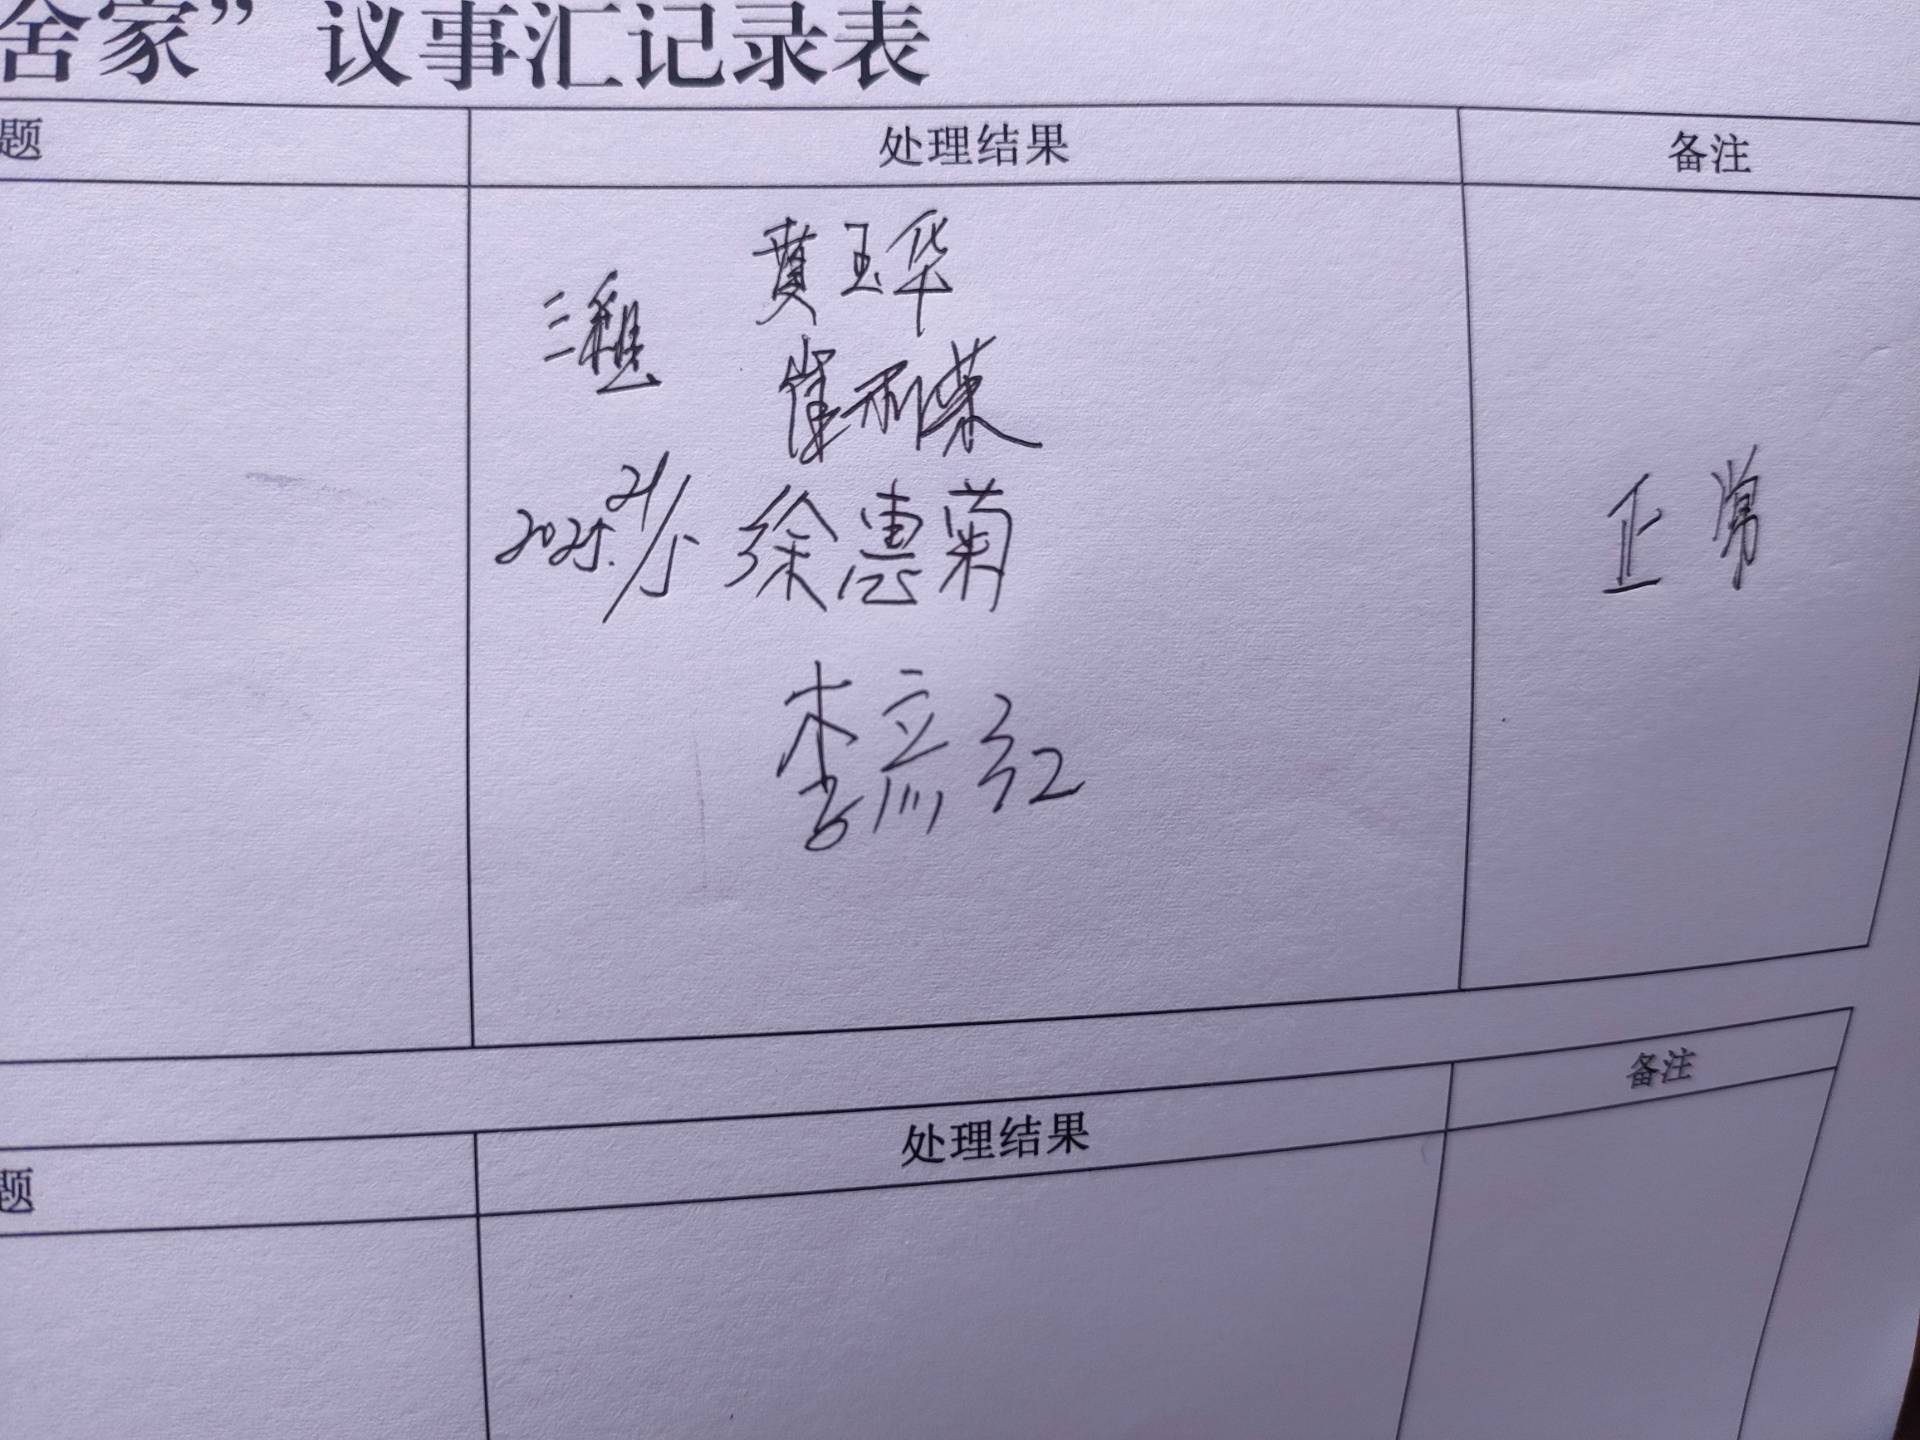 舍家”议事汇记录表
题 处理结果 备注
黄玉华
三组
崔利荣
2025. 21/5 徐惠菊
正常
李彦红
备注
处理结果
题